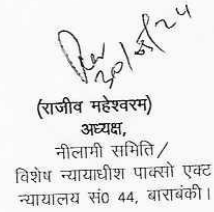 30/5/24
(राजीव महेश्वरम)
अध्यक्ष,
नीलामी समिति /
विशेष न्यायाधीश पाक्सो एक्ट
न्यायालय सं0 44, बाराबंकी।